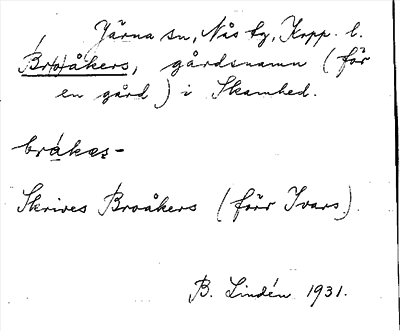 Järna sn, Nås tg, Kopp. l.
Br(o)åkers, gårdsnamn (för
en gård) i Skamhed.
bråkes-
Skrives Broåkers (förr Ivars).
B. Lindén 1931.